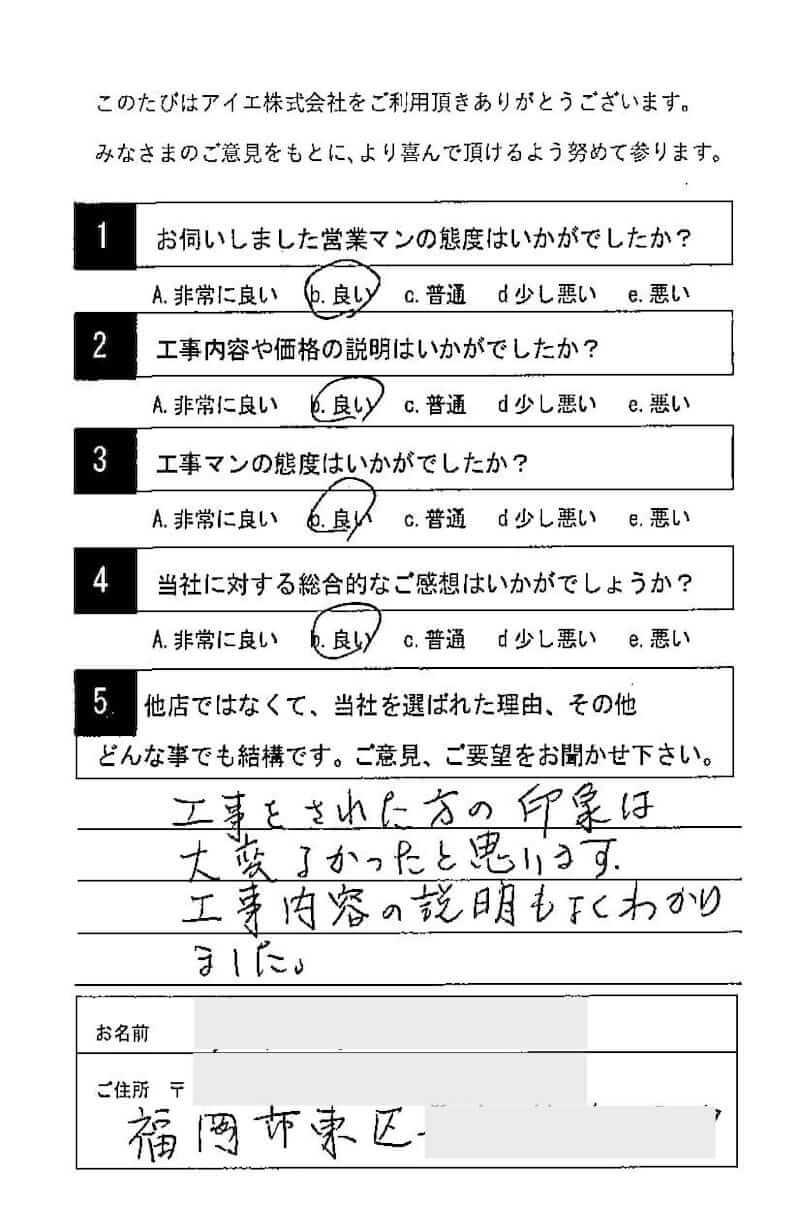 このたびはアイエ株式会社をご利用頂きありがとうございます。
みなさまのご意見をもとに、より喜んで頂けるよう努めて参ります。
1 お伺いしました営業マンの態度はいかがでしたか？
A. 非常に良い b. 良い c. 普通 d 少し悪い e. 悪い
2 工事内容や価格の説明はいかがでしたか？
A. 非常に良い b. 良い c. 普通 d 少し悪い e. 悪い
3 工事マンの態度はいかがでしたか？
A. 非常に良い b. 良い c. 普通 d 少し悪い e. 悪い
4 当社に対する総合的なご感想はいかがでしょうか？
A. 非常に良い b. 良い c. 普通 d 少し悪い e. 悪い
5 他店ではなくて、当社を選ばれた理由、その他
どんな事でも結構です。ご意見、ご要望をお聞かせ下さい。
工事をされた方の印象は
大変よかったと思います.
工事内容の説明もよくわかり
ました。
お名前
ご住所 〒
福岡市東区